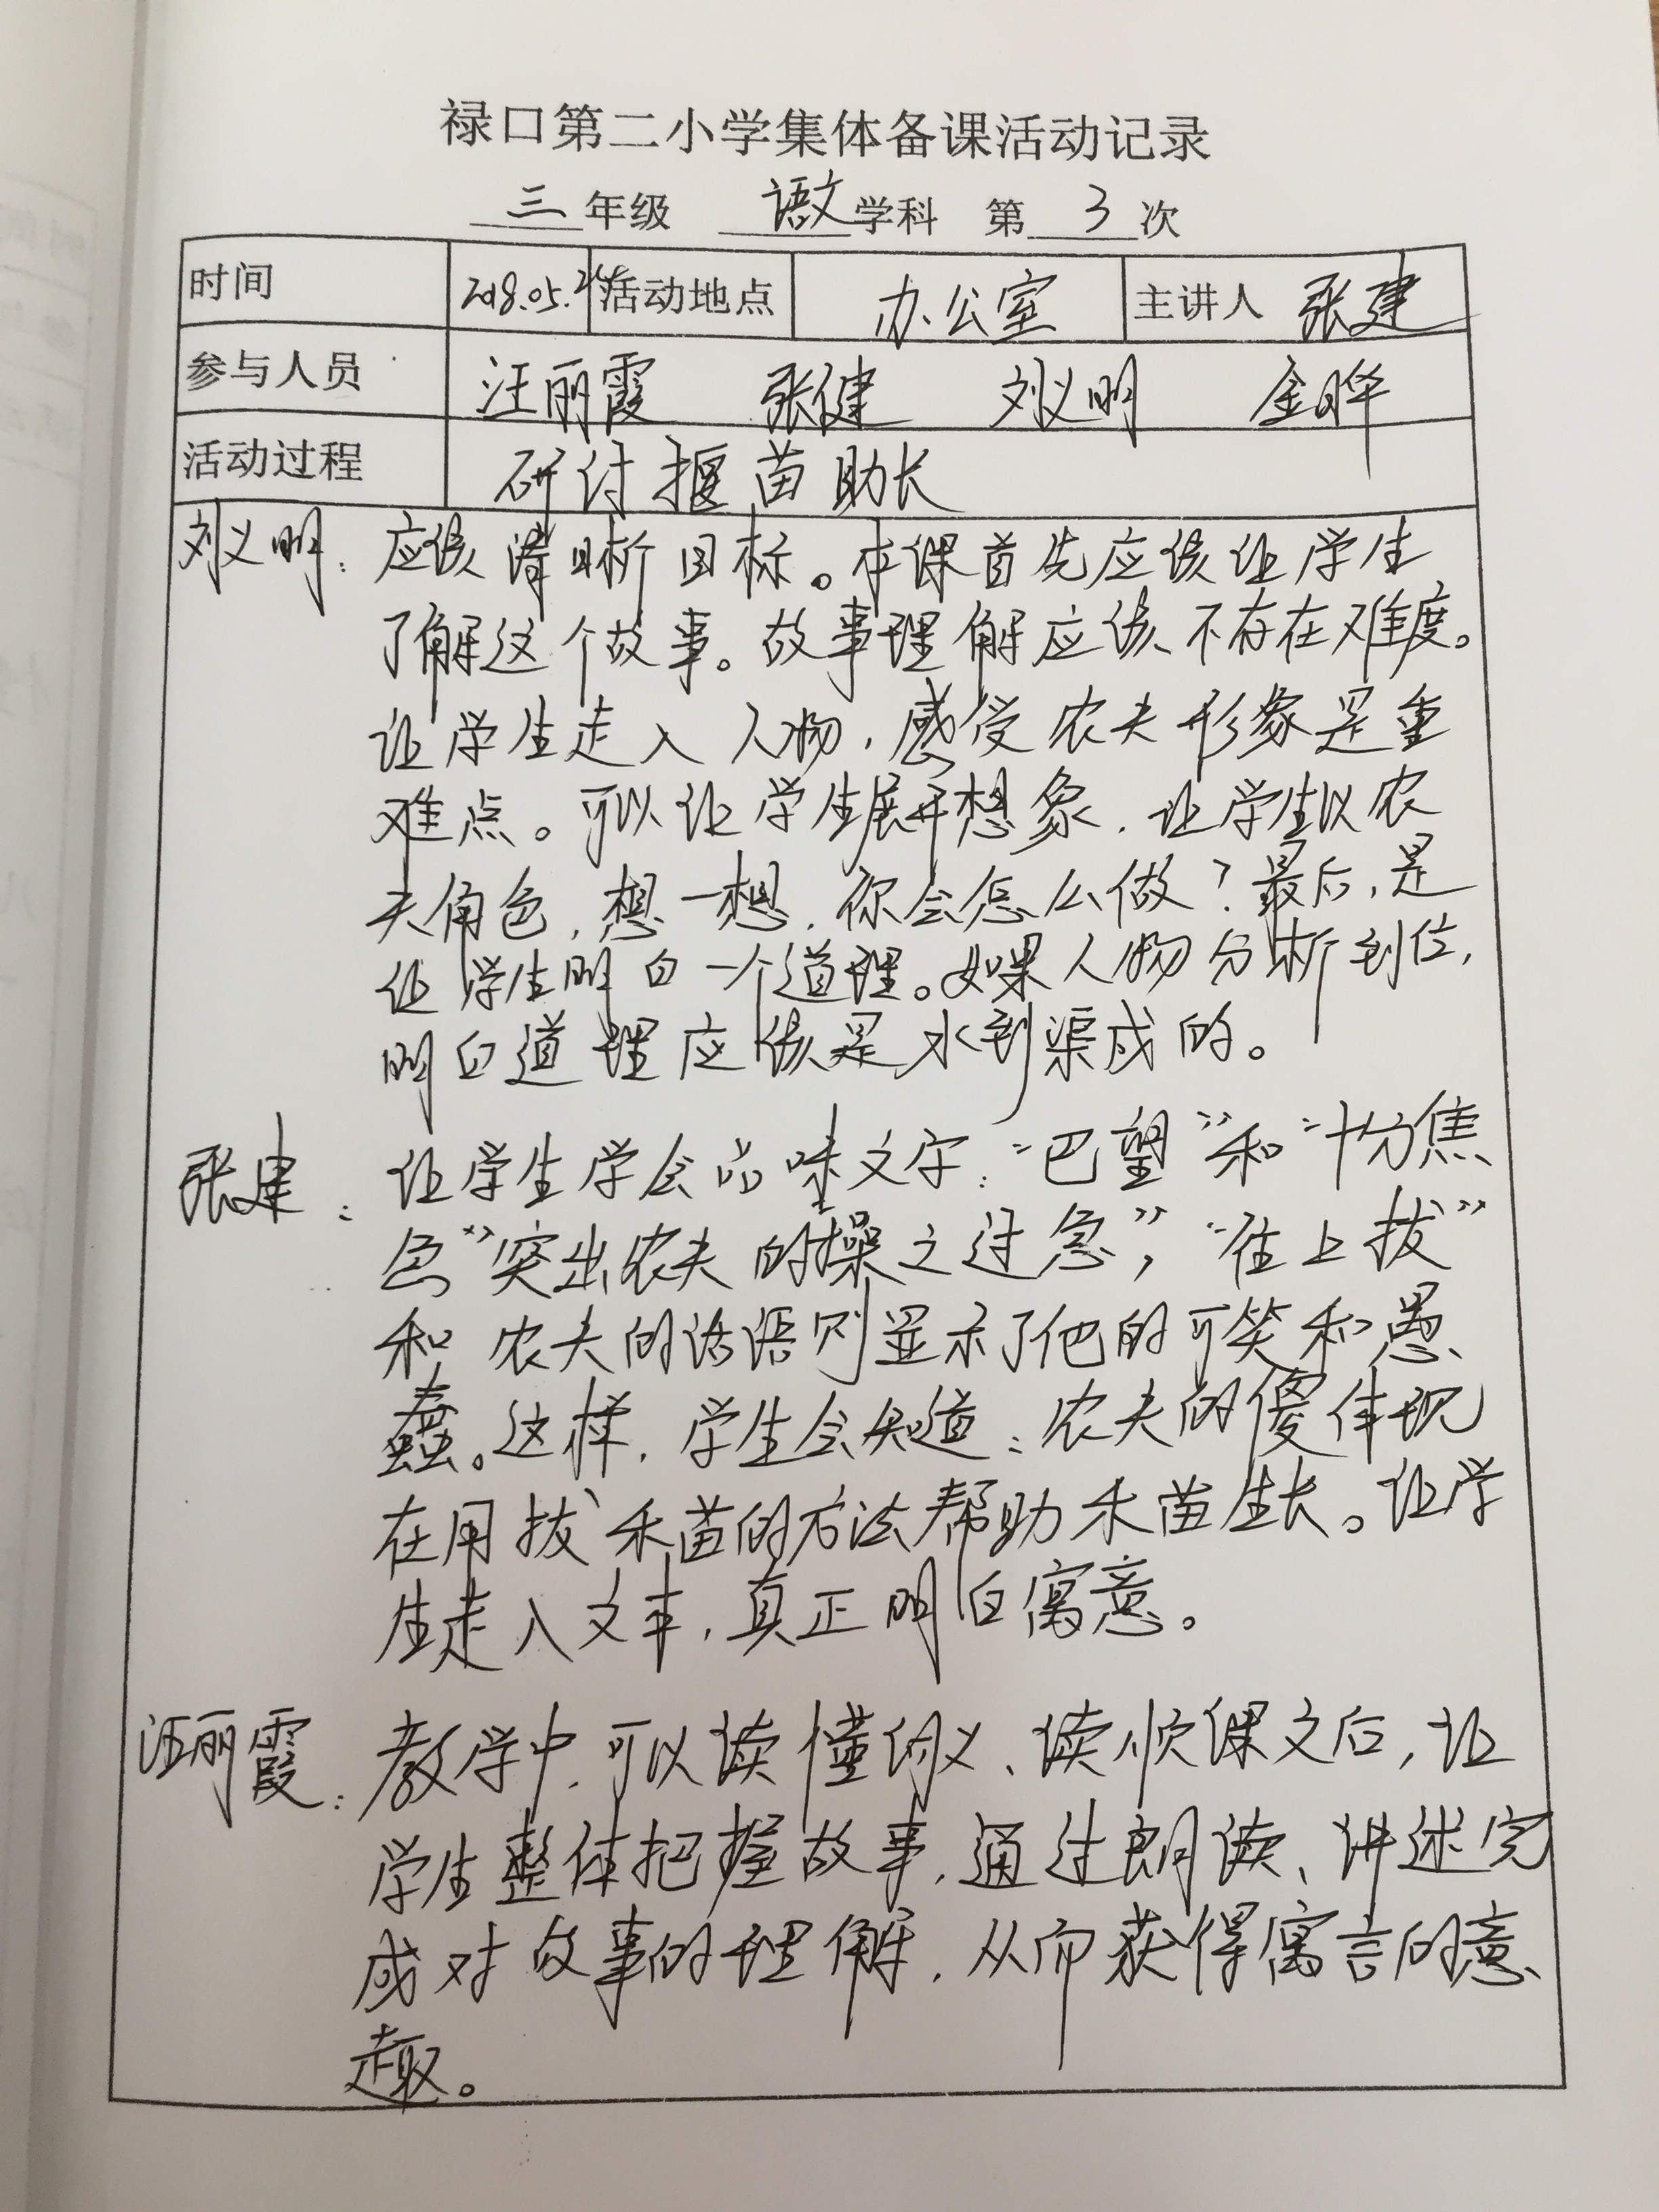 禄口第二小学集体备课活动记录
三年级 语文学科 第 3 次
时间 2018.05. 活动地点 办公室 主讲人 张建
参与人员 汪丽霞 张健 刘义明 金晔
活动过程 研讨揠苗助长
刘义明：应该清晰目标。本课首先应该让学生
了解这个故事。故事理解应该不存在难度。
让学生走入人物，感受农夫形象是重
难点。可以让学生展开想象，让学生以农
夫角色，想一想，你会怎么做？最后，是
让学生明白一个道理。如果人物分析到位，
明白道理应该是水到渠成的。
张建：让学生学会品味文字：“巴望”和“十分焦
急”突出农夫的操之过急”，“往上拔”
和农夫的话语则显示了他的可笑和愚
蠢。这样，学生会知道：农夫的傻体现
在用拔禾苗的方法帮助禾苗生长。让学
生走入文本，真正明白寓意。
汪丽霞：教学中，可以读懂词义、读顺课文后，让
学生整体把握故事，通过朗读、讲述完
成对故事的理解，从而获得寓言的意
趣。